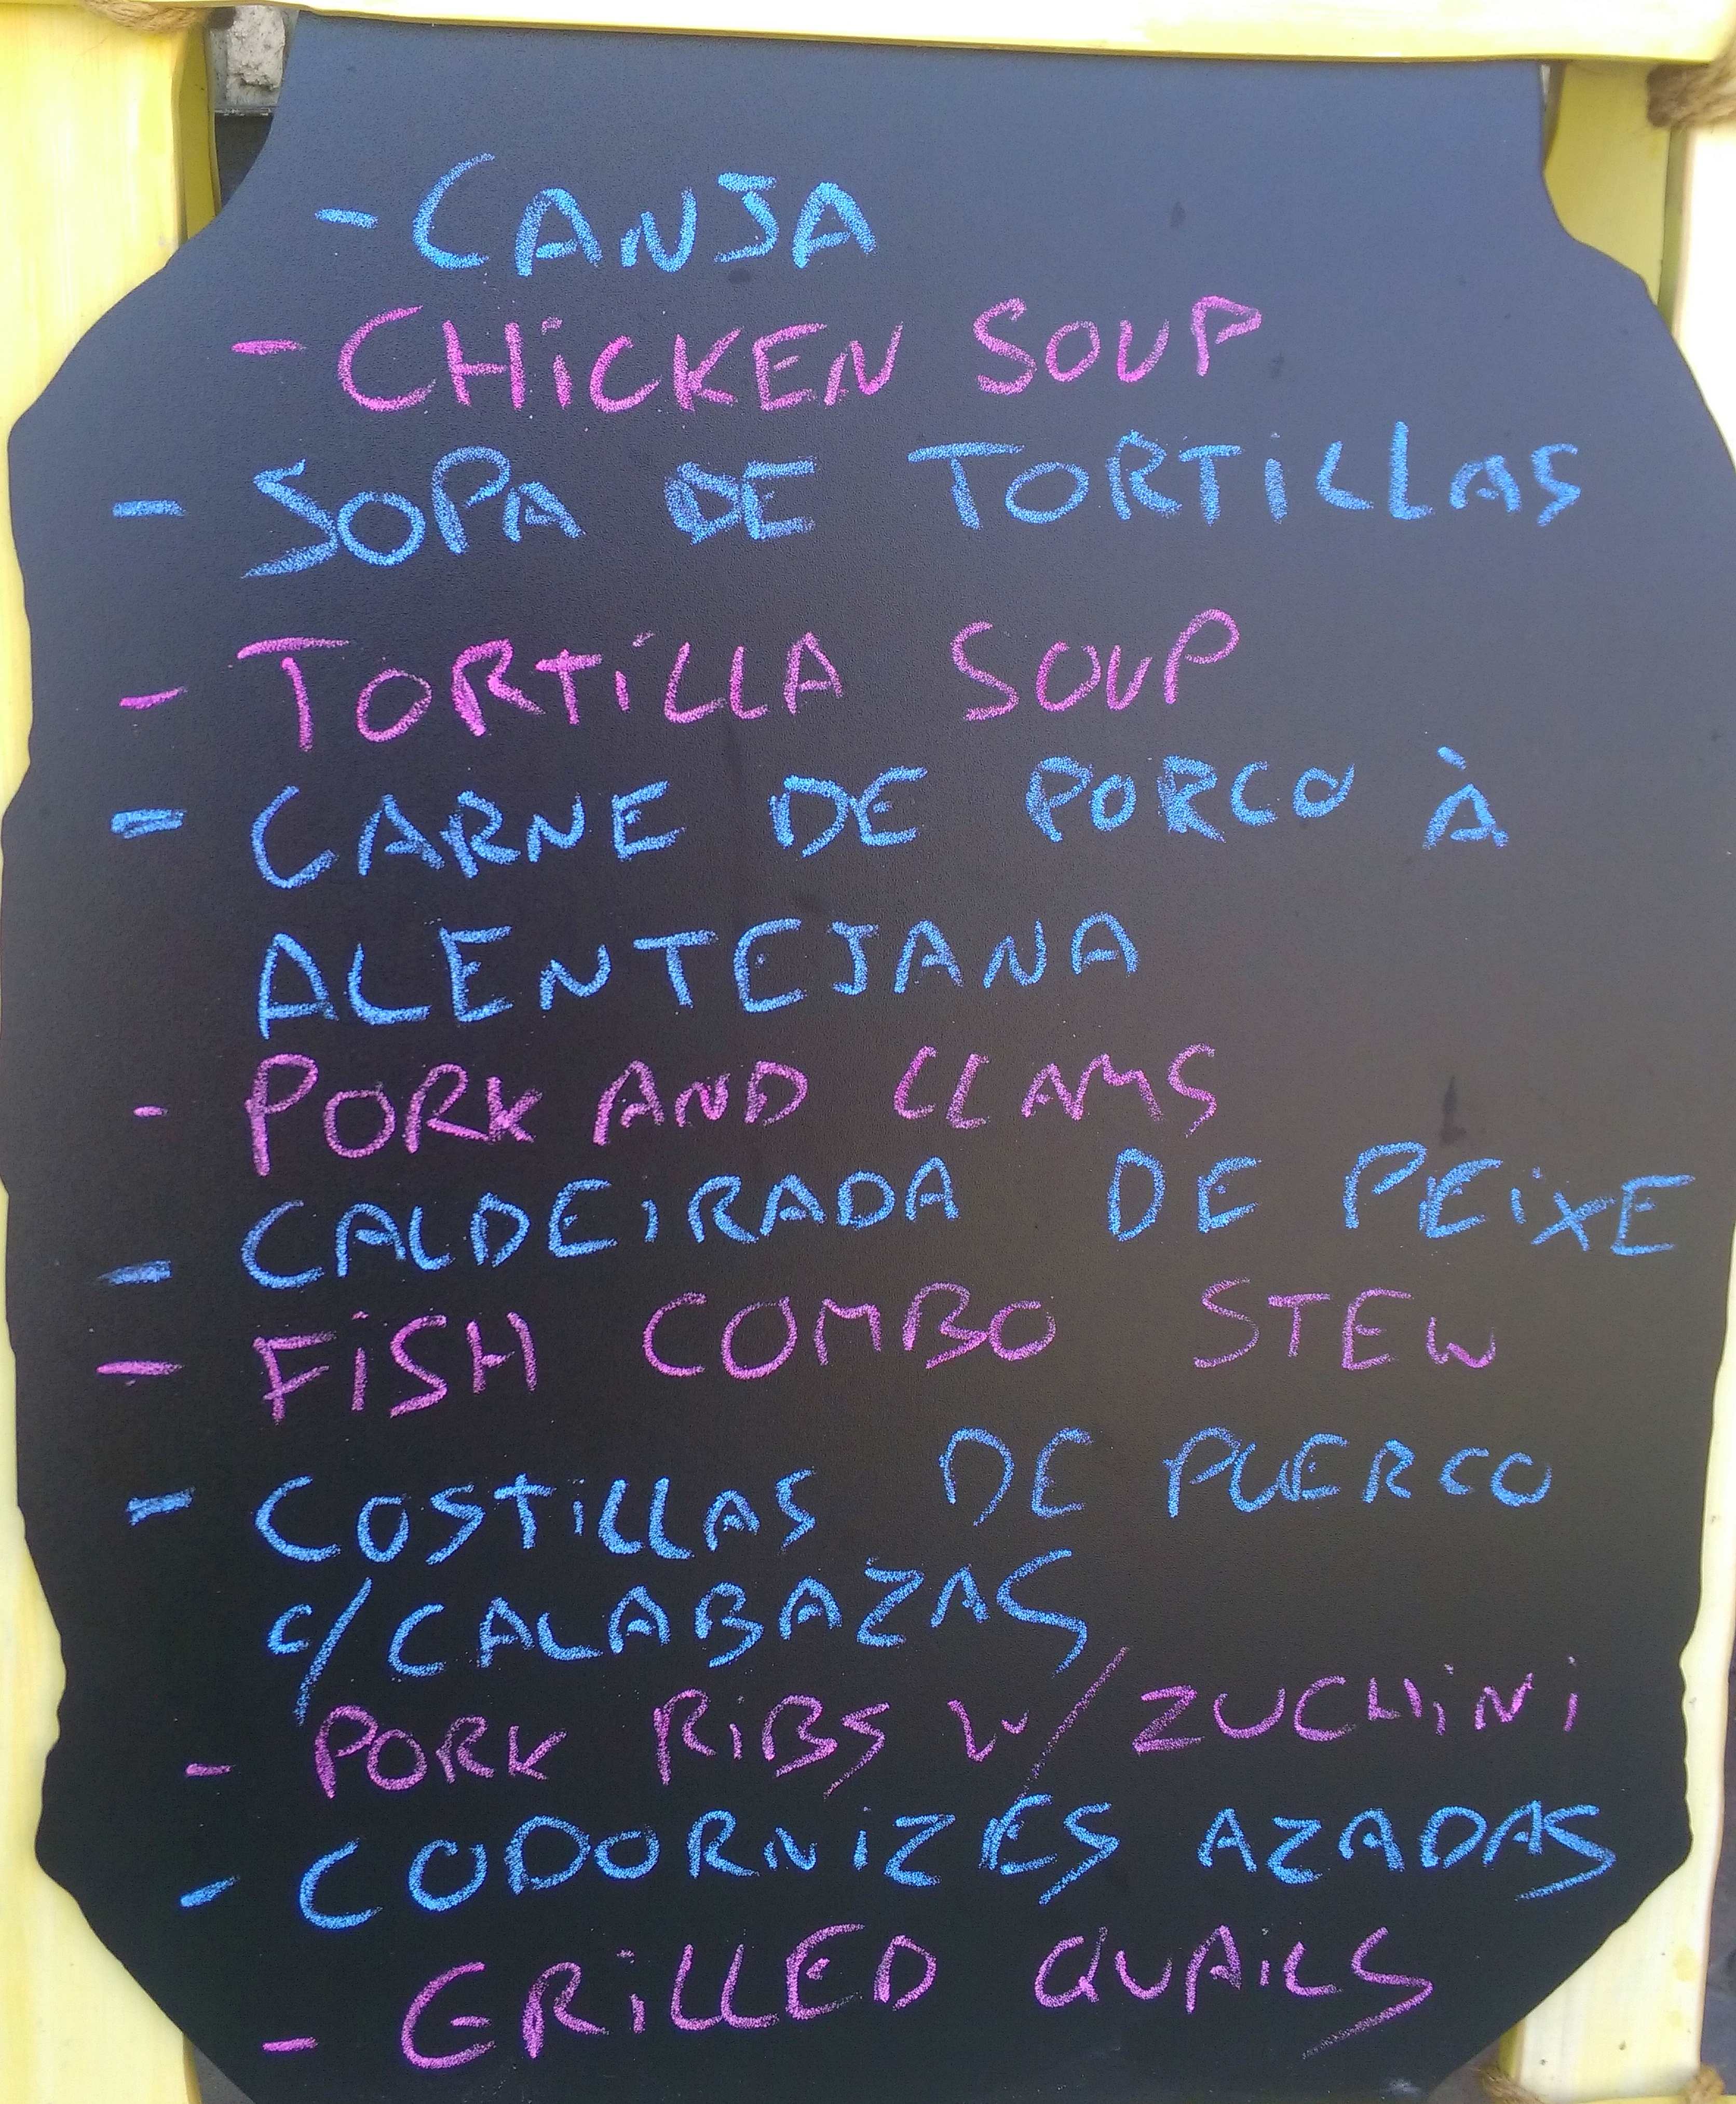 - CANJA
- CHiCKEN SOUP
- SOPA DE TORTiLLAS
- TORTiLLA SOUP
- CARNE DE PORCO À
ALENTEJANA
- PORK AND CLAMS
- CALDEiRADA DE PEiXE
- FiSH COMBO STEW
- COSTiLLAS DE PUERCO
c/CALABAZAS
- PORK RiBS W/ZUCHiNi
- CODORNiZES AZADAS
- GRiLLED QUAiLS